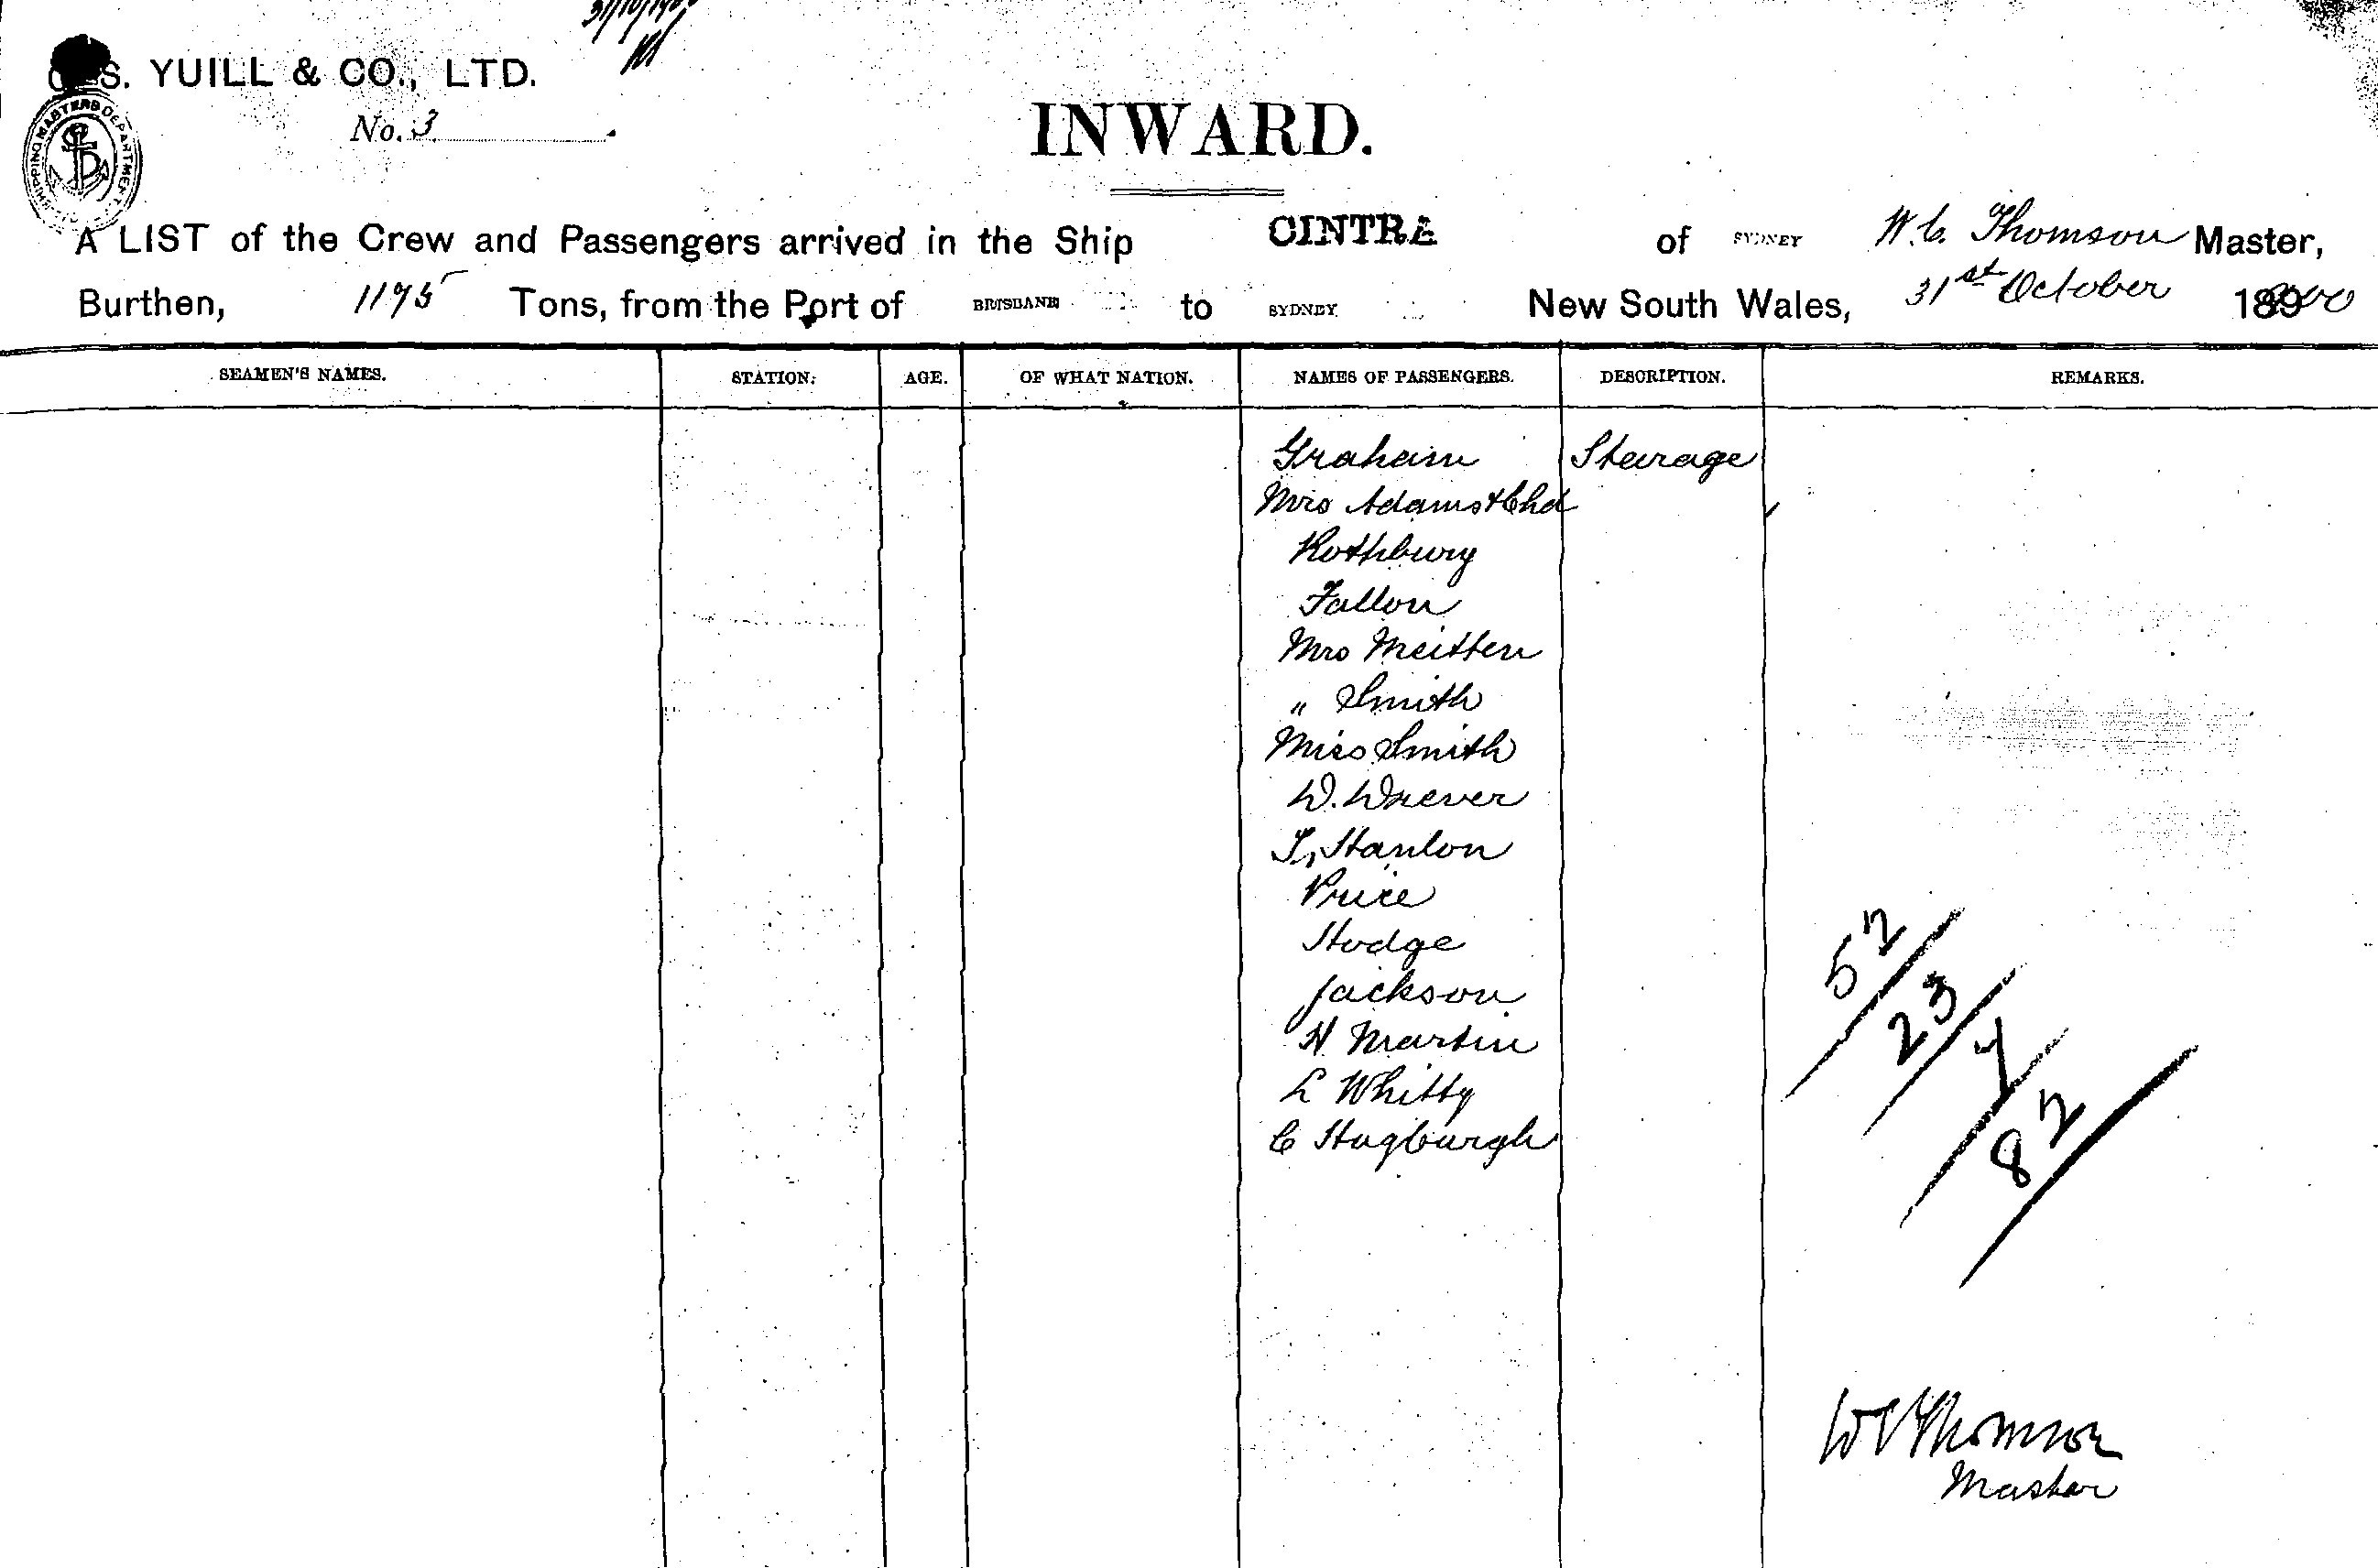 31/10/1900
G. S. YUILL & CO., LTD.
No. 3
SHIPPING MASTERS DEPARTMENT
INWARD.
A LIST of the Crew and Passengers arrived in the Ship CINTRA of SYDNEY W. C. Thomson Master,
Burthen, 1195 Tons, from the Port of BRISBANE to SYDNEY New South Wales, 31st October 1900
SEAMEN'S NAMES. STATION. AGE. OF WHAT NATION. NAMES OF PASSENGERS. DESCRIPTION. REMARKS.
Graham Stearage
Mrs Adams & Chd
Rothbury
Fallon
Mrs Meitten
" Smith
Miss Smith
W. Wrever
T, Hanlon
Price
Hodge
Jackson
H Martin
L Whitty
C Hugburgh
52
23
7
82
W C Thomson
Master